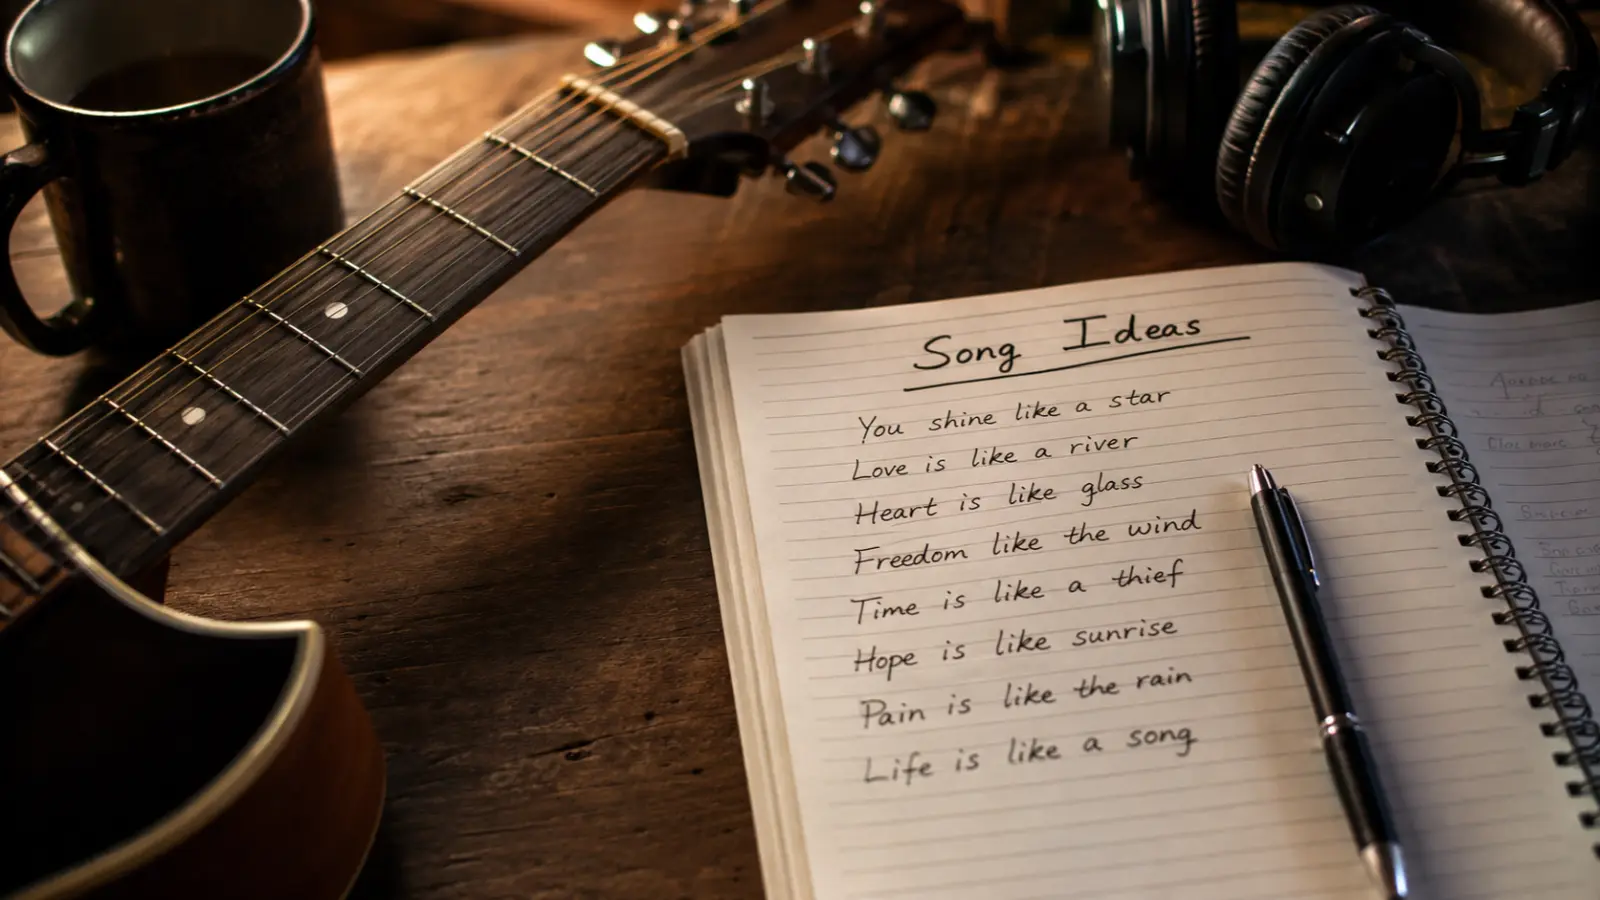 Song Ideas
You shine like a star
Love is like a river
Heart is like glass
Freedom like the wind
Time is like a thief
Hope is like sunrise
Pain is like the rain
Life is like a song